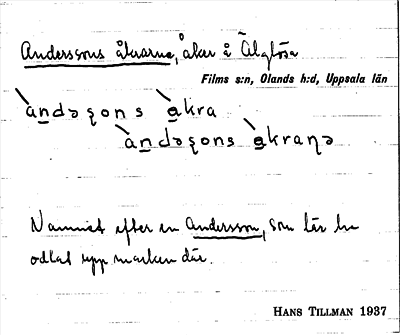 Anderssons åkrarna, åker å Älglösa
Films s:n, Olands h:d, Uppsala län
àndəʂons àkra
àndəʂons àkraɳə
Namnet efter en Andersson, som lär ha
odlat upp marken där.
HANS TILLMAN 1937